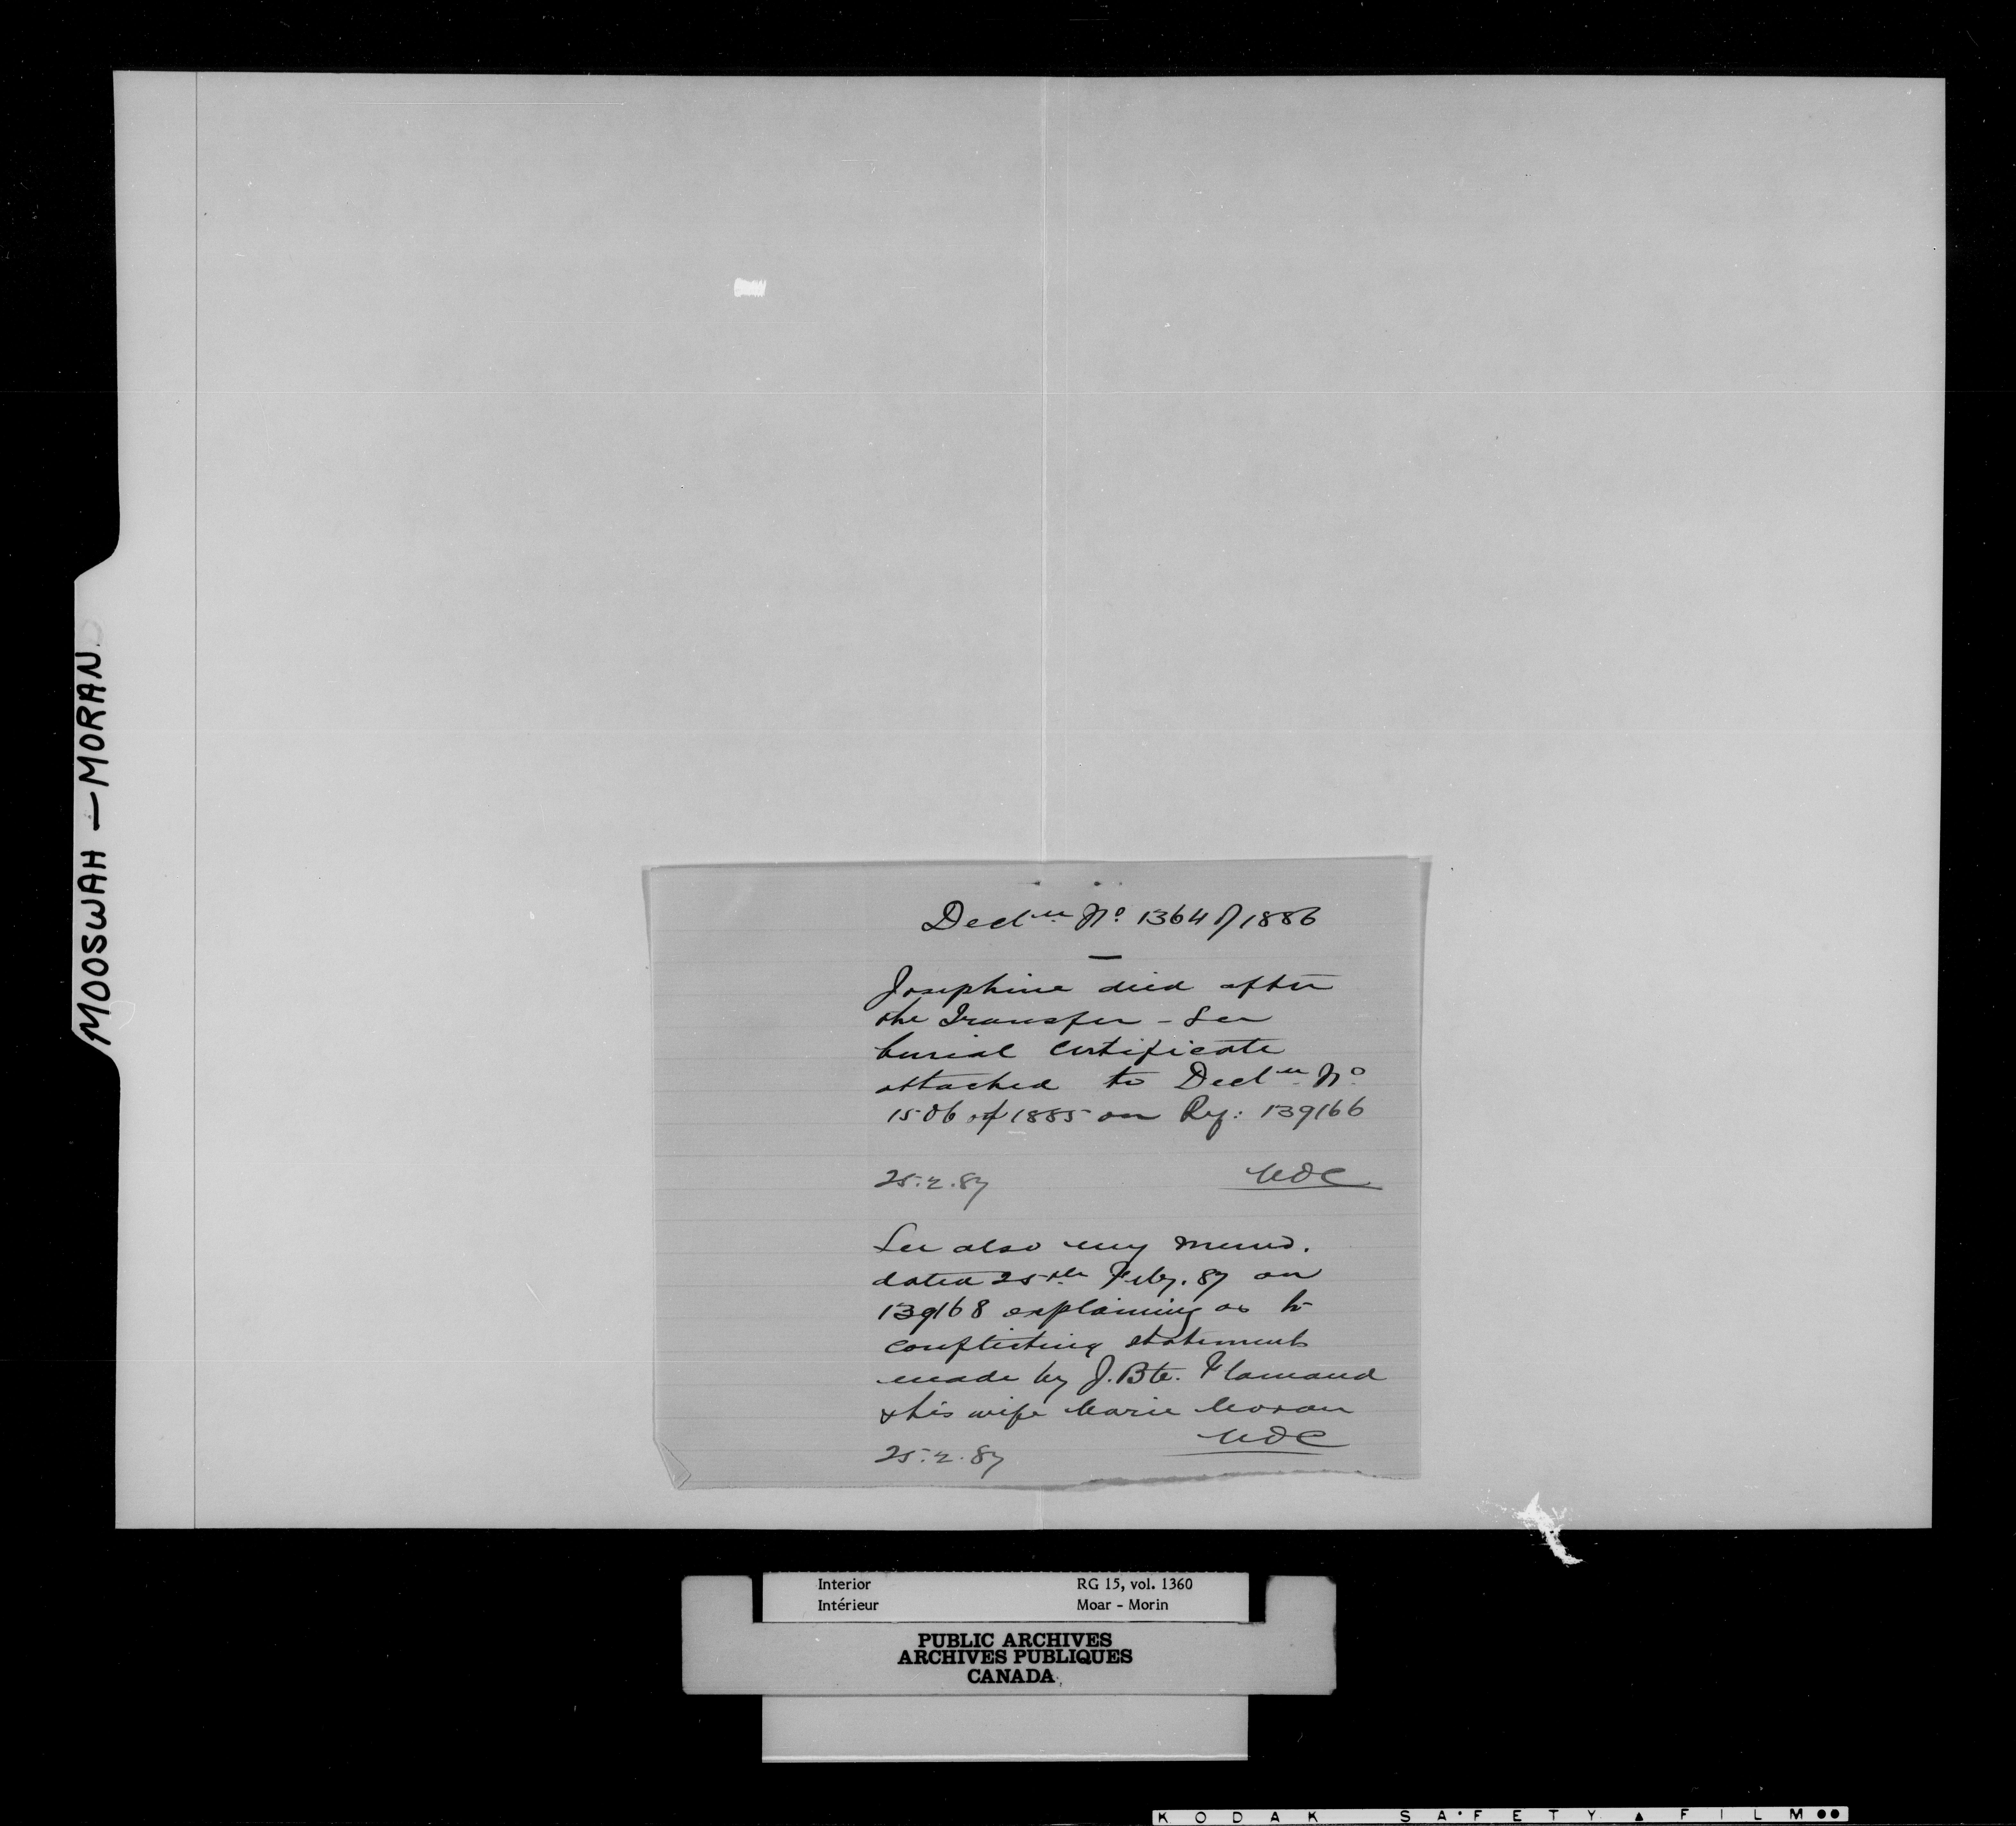 MOOSWAH — MORAN.
Decl.n No 1364 of 1886
—
Josephine died after
the Transfer – See
burial certificate
attached to Decl.n No
1506 of 1885 on Ref: 139166
25.2.87
See also my memo.
dated 25th Feby. 87 on
139168 explaining as to
conflicting statements
made by J. Bte. Flamand
& his wife Marie Moran
25.2.87
Interior RG 15, vol. 1360
Intérieur Moar - Morin
PUBLIC ARCHIVES
ARCHIVES PUBLIQUES
CANADA
KODAK SAFETY FILM